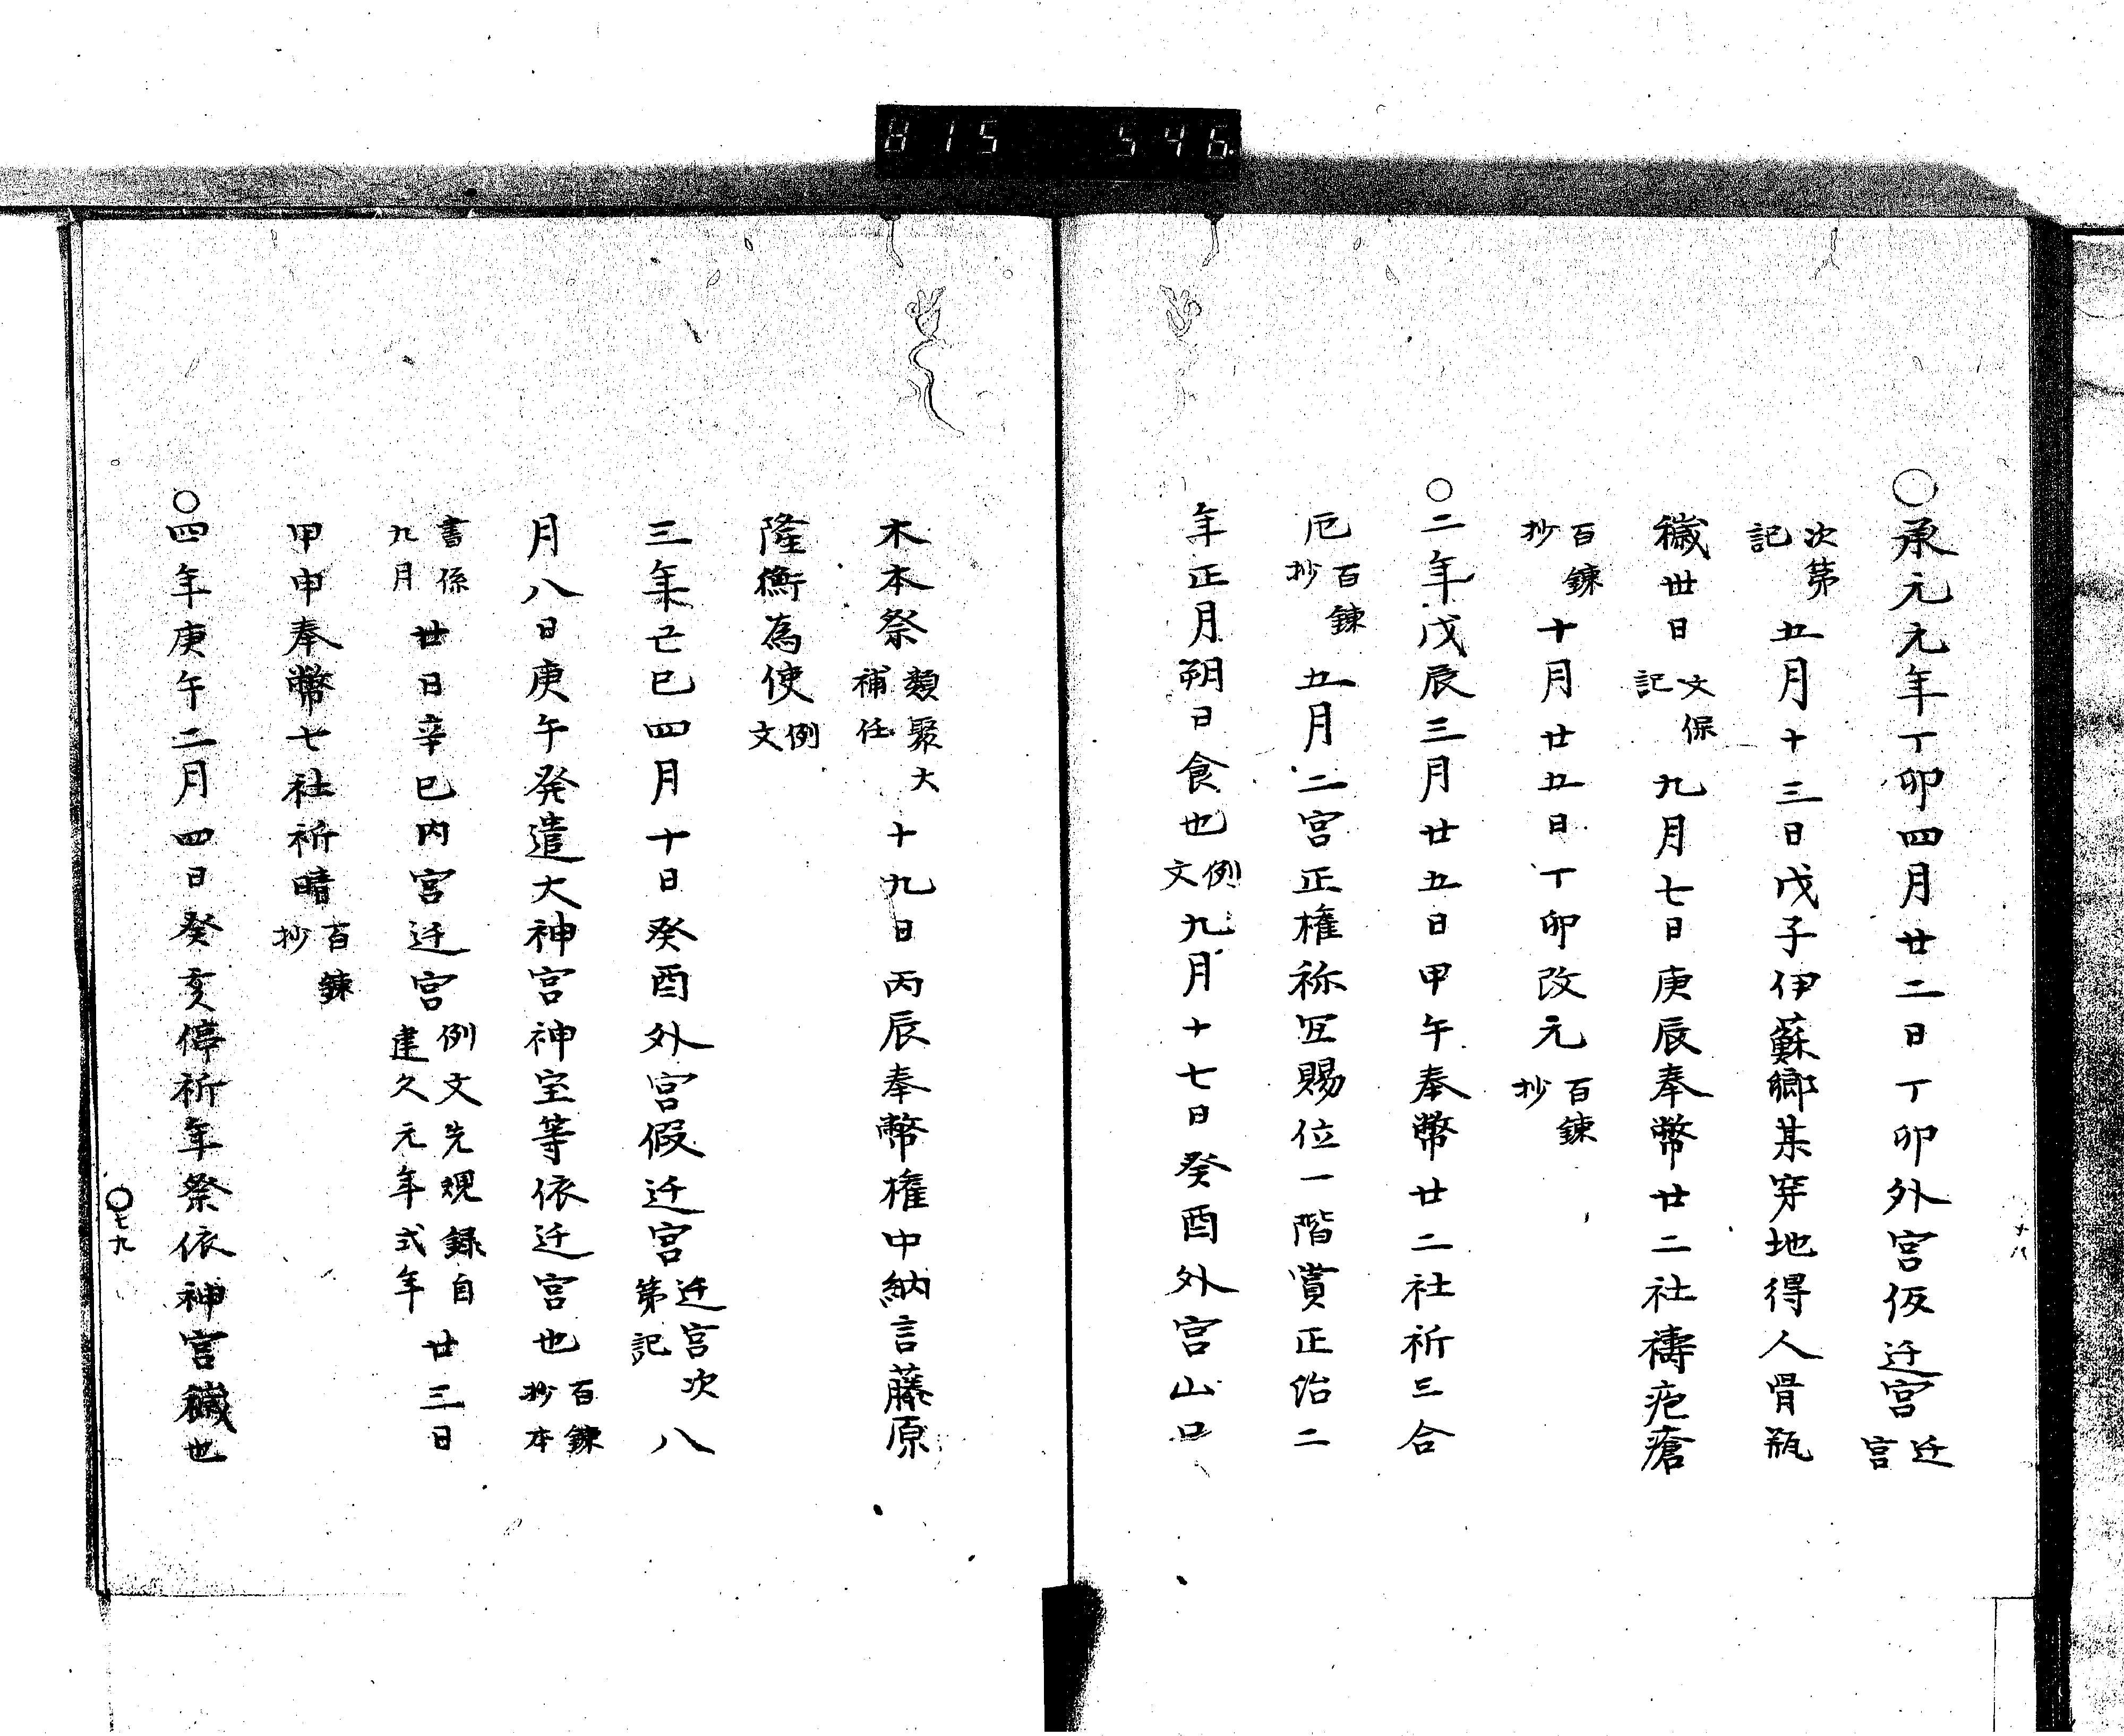 815 546
○承元元年丁卯四月廿二日丁卯外宮仮迁宮迁宮
次第記五月十三日戊子伊蘇郷某穿地得人骨瓶
穢丗日文保記九月七日庚辰奉幣廿二社禱疱瘡
百錬抄十月廿五日丁卯改元百錬抄
○二年戊辰三月廿五日甲午奉幣廿二社祈三合
厄百錬抄五月二宮正権祢宜賜位一階賞正治二
年正月朔日食也例文九月十七日癸酉外宮山口
十八
木本祭類聚大補任十九日丙辰奉幣権中納言藤原
隆衡為使例文
三年己巳四月十日癸酉外宮假迁宮迁宮次第記八
月八日庚午発遣大神宮神宝等依迁宮也百錬抄本
書係九月廿日辛巳内宮迁宮例文先規録自建久元年式年廿三日
甲申奉幣七社祈晴百錬抄
○四年庚午二月四日癸亥停祈年祭依神宮穢也
○七九